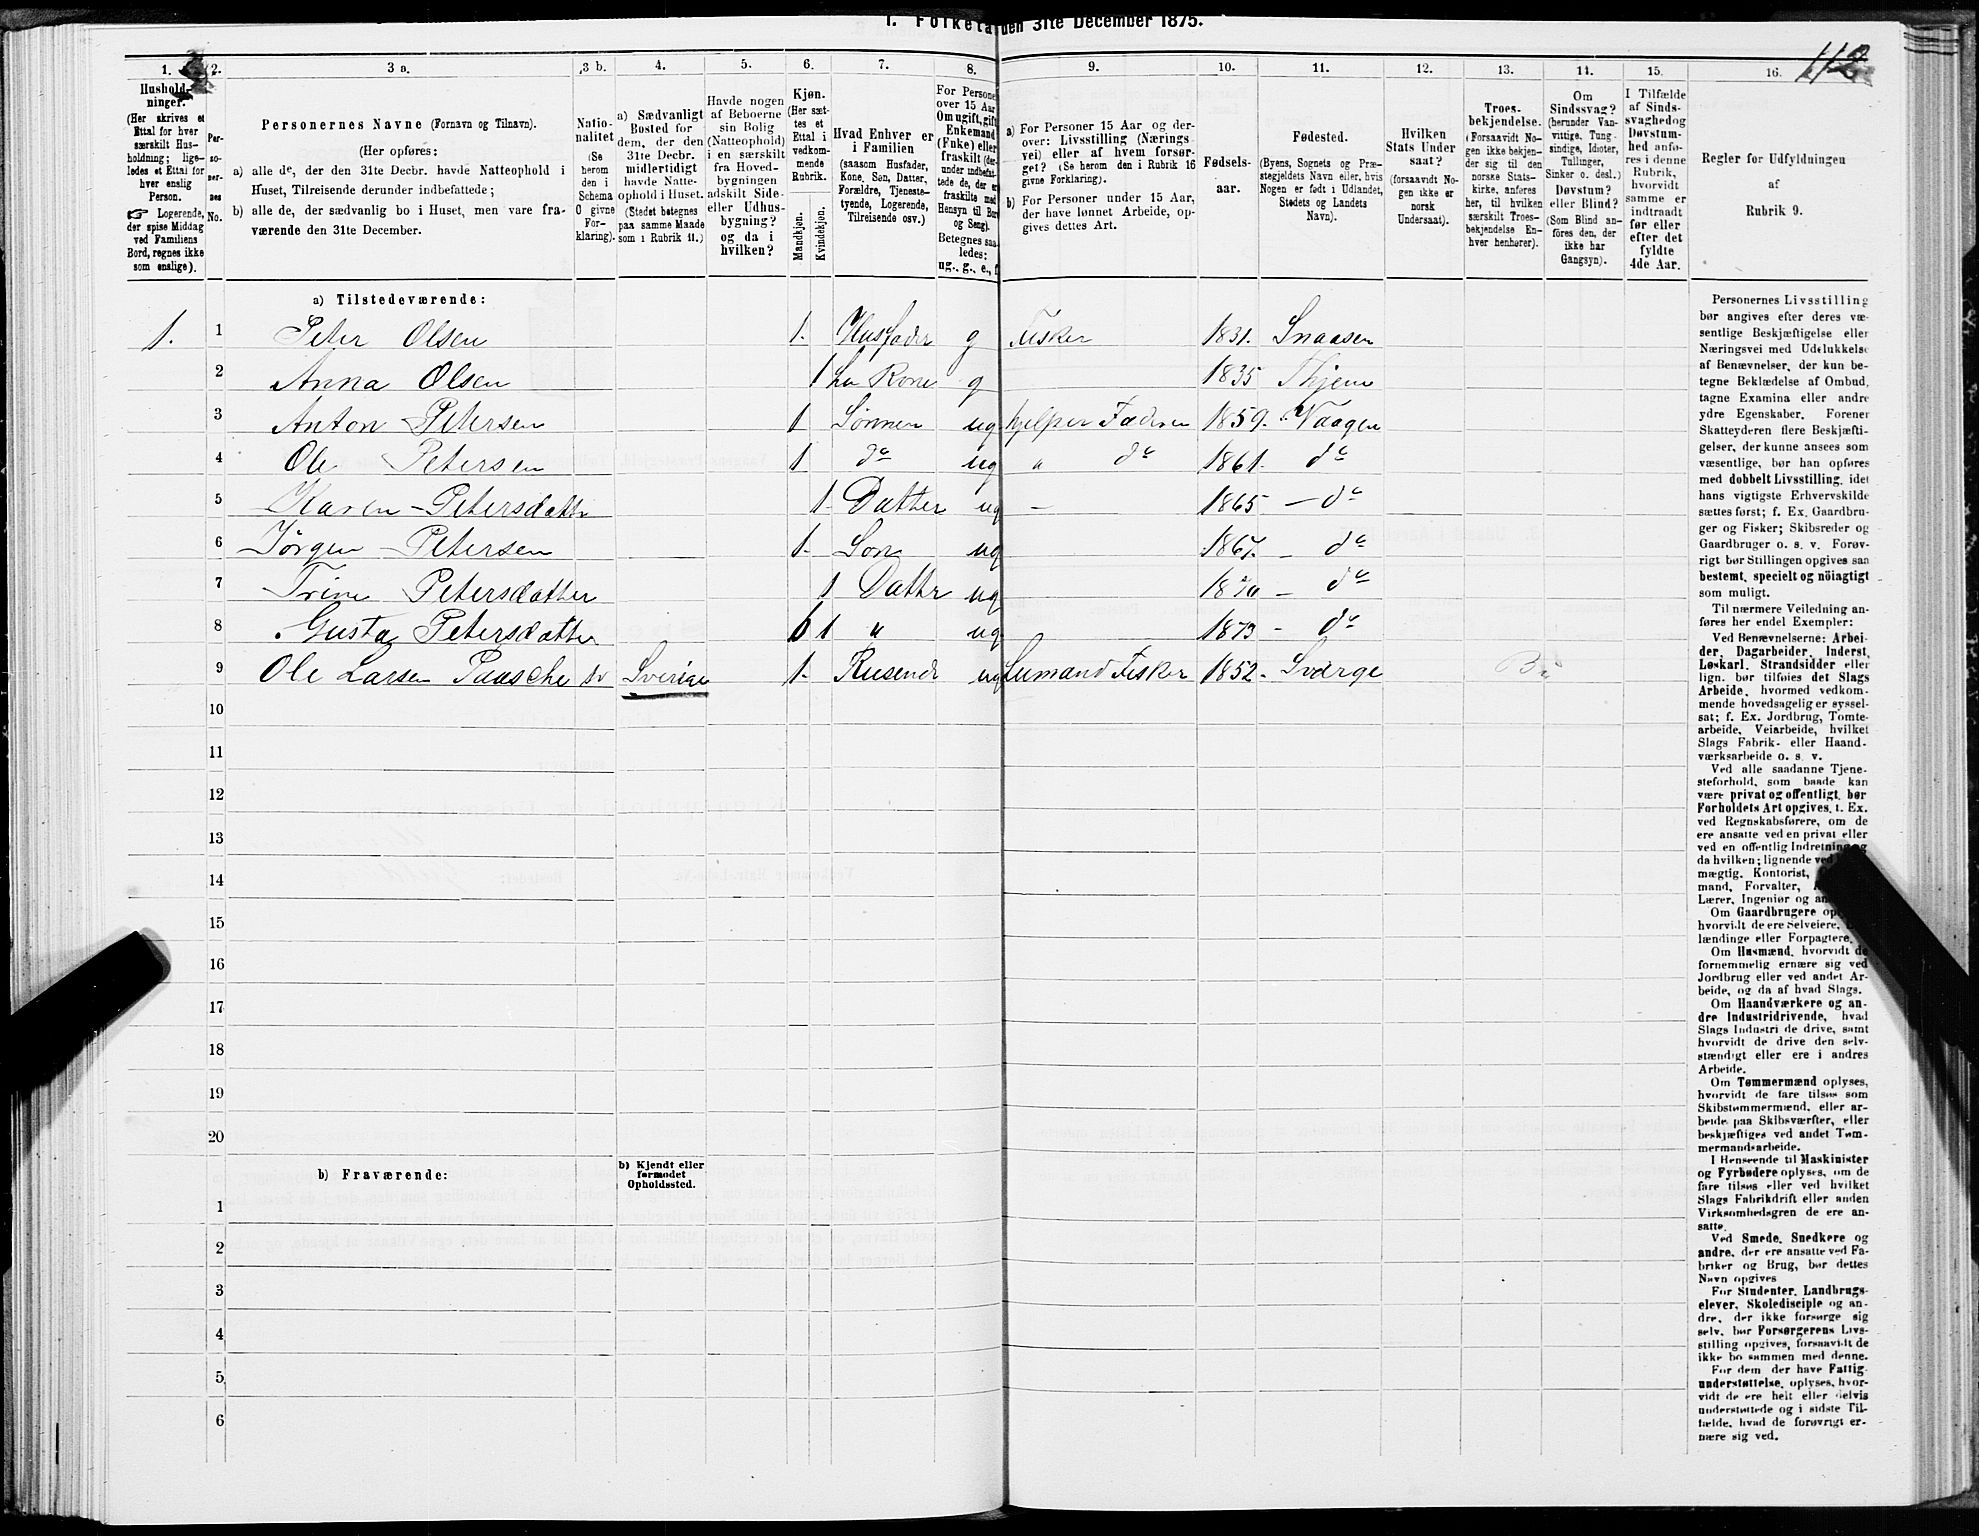 1. Folketa den 31te December 1875.
112
1. 2. 3 a. 3 b. 4. 5. 6. 7. 8. 9. 10. 11. 12. 13. 14. 15. 16.
Hushold-
ninger.
(Her skrives et
Ettal for hver
særskilt Hus-
holdning; lige-
ledes et Ettal for
hver enslig
Person.
☞ Logerende,
der spise Middag
ved Familiens
Bord, regnes ikke
som enslige).
Per-
so-
ner-
nes
No.
Personernes Navne (Fornavn og Tilnavn).
(Her opføres:
a) alle de, der den 31te Decbr. havde Natteophold i
Huset, Tilreisende derunder indbefattede;
b) alle de, der sædvanlig bo i Huset, men vare fra-
værende den 31te December.
Natio-
nalitet
(Se
herom
den i
Schema
O givne
For-
klaring).
a) Sædvanligt
Bosted for
dem, der den
31te Decbr.
midlertidigt
havde Natte-
ophold i Huset.
(Stedet betegnes
paa samme Maade
som i Rubrik 11.)
Havde nogen
af Beboerne
sin Bolig
(Natteophold)
i en særskilt
fra Hoved-
bygningen
adskilt Side-
eller Udhus-
bygning?
og da i
hvilken?
Kjøn.
(Her sæt-
tes et
Ettal i
vedkom-
mende
Rubrik.
Mandkjøn.
Kvindekjøn.
Hvad Enhver er
i Familien
(saasom Husfader,
Kone, Søn, Datter,
Forældre, Tjeneste-
tyende, Logerende,
Tilreisende osv.)
For Persone
over 15 Aar
Om ugift, gift
Enkemand
(Enke) eller
fraskilt (der-
under indbefat-
tede de, der er
fraskilte med
Hensyn til Bord
og Seng).
Betegnes saa-
ledes:
ug., g., e., f.
a) For Personer 15 Aar og der-
over: Livsstilling (Nærings-
vei) eller af hvem forsør-
get? (Se herom den i Rubrik 16
givne Forklaring).
b) For Personer under 15 Aar,
der have lønnet Arbeide, op-
gives dettes Art.
Fødsels-
aar.
Fødested.
(Byens, Sognets og Præ-
stegjeldets Navn eller, hvis
Nogen er født i Udlandet,
Stedets og Landets
Navn).
Hvilken
Stats Under
saat?
(forsaavidt No-
gen ikke er
norsk
Undersaat).
Troes-
bekjendelse.
(Forsaavidt No-
gen ikke bekjen-
der sig til den
norske Stats-
kirke, anføres
her, til hvilken
særskilt Troes-
bekjendelse En-
hver henhører).
Om
Sindssvag?
(herunder Van-
vittige, Tung-
sindige, Idioter,
Tullinger,
Sinker o. desl.)
Døvstum?
eller Blind?
(Som Blind an-
føres den, der
ikke har
Gangsyn).
I Tilfælde
af Sinds-
svaghed og
Døvstum-
hed anfø-
res i denne
Rubrik,
hvorvidt
samme er
indtraadt
før eller
efter det
fyldte
4de Aar.
Regler for Udfyldningen
af
Rubrik 9.
a) Tilstedeværende:
1. 1 Peter Olsen 1. Husfader g Fisker 1831. Snaasen
2 Anna Olsen 1 hs Kone g 1835
3 Anton Petersen 1 Sønner ug hjelper Faderen 1859. Vaagen
4 Ole Petersen 1 do ug " do 1861. do
5 Karen - Petersdatter 1. Datter ug - 1865 - do
6 Jörgen - Petersen 1. Søn ug 1867. - do
7 Trine Petersdatter 1 Datter ug 1870 - do
8 Gusta Petersdatter 1 " ug 1873 - do
9 Ole Larsen Paasche sv Sverige 1. Reisende ug Leimand Fisker 1852. Sværge
10
11
12
13
14
15
16
17
18
19
20
b) Fraværende:
b) Kjendt eller
formodet
Opholdssted.
1
2
3
4
5
6
Personernes Livsstilling
bør angives efter deres væ-
sentlige Beskjæftigelse eller
Næringsvei med Udelukkelse
af Benævnelser, der kun be-
tegne Beklædelse af Ombud,
tagne Examina eller andre
ydre Egenskaber. Forener
Skatteyderen flere Beskjæfti-
gelser, der kunne ansees som
væsentlige, bør han opføres
med dobbelt Livsstilling, idet
hans vigtigste Erhvervskilde
sættes først; f. Ex. Gaardbru-
ger og Fisker; Skibsreder og
Gaardbruger o. s. v. Forøv-
rigt bør Stillingen opgives saa
bestemt, specielt og nöiagtigt
som muligt.
Til nærmere Veiledning an-
føres her endel Exempler:
Ved Benævnelserne: Arbei-
der, Dagarbeider, Inderst,
Løskarl, Strandsidder eller
lign. bør tilføies det Slags
Arbeide, hvormed vedkom-
mende hovedsagelig er syssel-
sat; f. Ex. Jordbrug, Tomte-
arbeide, Veiarbeide, hvilket
Slags Fabrik- eller Haand-
værksarbeide o. s. v.
Ved alle saadanne Tjene-
steforhold, som baade kan
være privat og offentligt, bør
Forholdets Art opgives, t. Ex.
ved Regnskabsførere, om de
ere ansatte ved en privat eller
ved en offentlig Indretning og
da hvilken; lignende ved
mægtig, Kontorist,
mand, Forvalter,
Lærer, Ingeniør og
Om Gaardbrugere
hvorvidt de ere Selveiere,
lændinge eller Forpagtere.
Om Husmænd, hvorvidt de
fornemmelig ernære sig ved
Jordbrug eller ved andet Ar-
beide, og da af hvad Slags.
Om Haandværkere og an-
dre Industridrivende, hvad
Slags Industri de drive, samt
hvorvidt de drive den selv-
stændigt eller ere i andres
Arbeide.
Om Tømmermænd oplyses,
hvorvidt de fare tilsøs som
Skibstømmermænd, eller ar-
beide paa Skibsværfter, eller
beskjæftiges ved andet Tøm-
mermandsarbeide.
I Henseende til Maskinister
og Fyrbødere oplyses, om de
fare tilsøs eller ved hvilket
Slags Fabrikdrift eller anden
Virksomhedsgren de ere an-
satte.
Ved Smede, Snedkere og
andre, der ere ansatte ved Fa-
briker og Brug, bør dettes
Navn opgives
For Studenter, Landbrugs-
elever, Skoledisciple og an-
dre, der ikke forsørge sig
selv, bør Forsørgerens Livs-
stilling opgives, forsaavidt de
ikke bo sammen med denne.
For dem, der have Fattig-
understøttelse, oplyses, hvor-
vidt de ere helt eller delvis
understøttede og i sidste Til-
fælde, hvad de forøvrigt er-
nære sig ved.